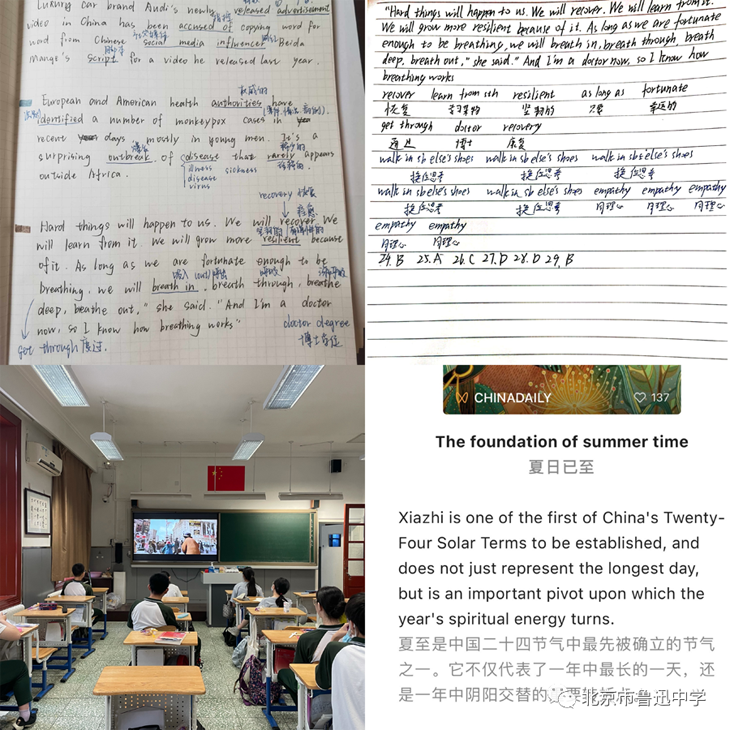 Luxury car brand Audi's newly released advertisement
video in China has been accused of copying word for
word from Chinese social media influencer Beida
Mange's script for a video he released last year.
权威的
European and American health authorities have
identified a number of monkeypox cases in
recent days, mostly in young men. It's a
surprising outbreak of disease that rarely appears
outside Africa.
illness sickness
disease
virus
recovery 恢复
Hard things will happen to us. We will recover. We
will learn from it. We will grow more resilient because
of it. As long as we are fortunate enough to be
breathing, we will breath in, breath through, breathe
deep, breathe out," she said. "And I'm a doctor
now, so I know how breathing works"
doctor degree
博士学位
get through 度过.
"Hard things will happen to us. We will recover. We will learn from it.
We will grow more resilient because of it. As long as we are fortunate
enough to be breathing, we will breath in, breath through, breath
deep, breath out," she said." And I'm a doctor now, so I know how
breathing works
recover learn from sth resilient as long as fortunate
恢复 坚韧的 只要 幸运的
get through doctor recovery
通过 博士 康复
walk in sb else's shoes walk in sb else's shoes walk in sb else's shoes
换位思考 换位思考 换位思考
walk in sb else's shoes walk in sb else's shoes empathy empathy empathy
换位思考 换位思考 同理心 同理心 同理心
empathy empathy
同理心 同理心
24. B 25. A 26. C 27. D 28. D 29. B
CHINADAILY 137
The foundation of summer time
夏日已至
Xiazhi is one of the first of China's Twenty-
Four Solar Terms to be established, and
does not just represent the longest day,
but is an important pivot upon which the
year's spiritual energy turns.
夏至是中国二十四节气中最先被确立的节气
之一。它不仅代表了一年中最长的一天，还
是一年中阴阳交替的
北京市鲁迅中学